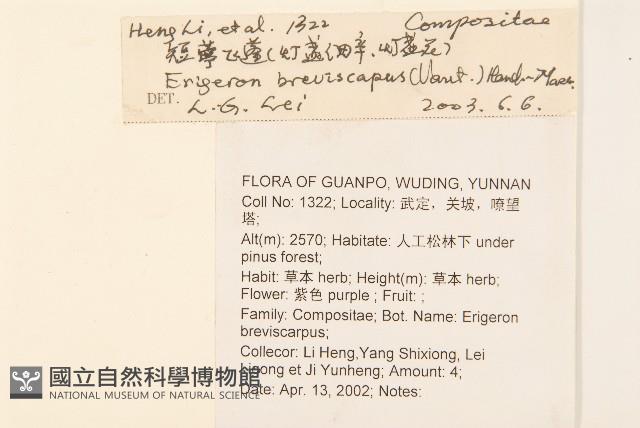 Heng Li, et al. 1322 Compositae
短葶飞蓬(灯盏细辛、灯盏花)
Erigeron breviscapus (Vant.) Hand.-Mazz.
DET. L. G. Lei 2003. 6. 6.
FLORA OF GUANPO, WUDING, YUNNAN
Coll No: 1322; Locality: 武定，关坡，嘹望
塔;
Alt(m): 2570; Habitate: 人工松林下 under
pinus forest;
Habit: 草本 herb; Height(m): 草本 herb;
Flower: 紫色 purple ; Fruit: ;
Family: Compositae; Bot. Name: Erigeron
breviscarpus;
Collecor: Li Heng,Yang Shixiong, Lei
et Ji Yunheng; Amount: 4;
Date: Apr. 13, 2002; Notes:
國立自然科學博物館
NATIONAL MUSEUM OF NATURAL SCIENCE